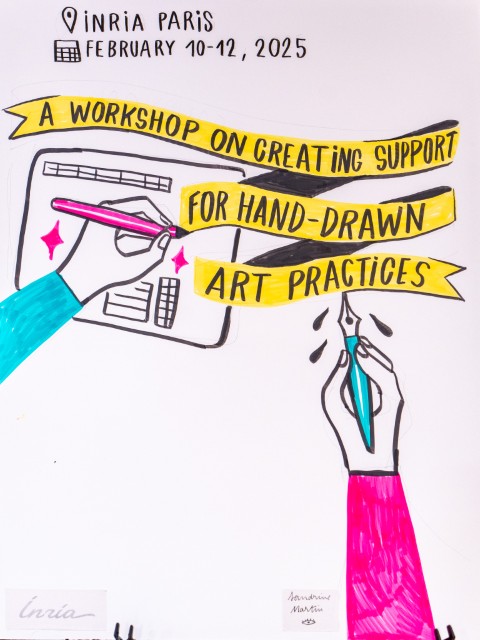 INRIA PARIS
FEBRUARY 10-12, 2025
A WORKSHOP ON CREATING SUPPORT
FOR HAND-DRAWN
ART PRACTICES
Inria
Sandrine
Martin